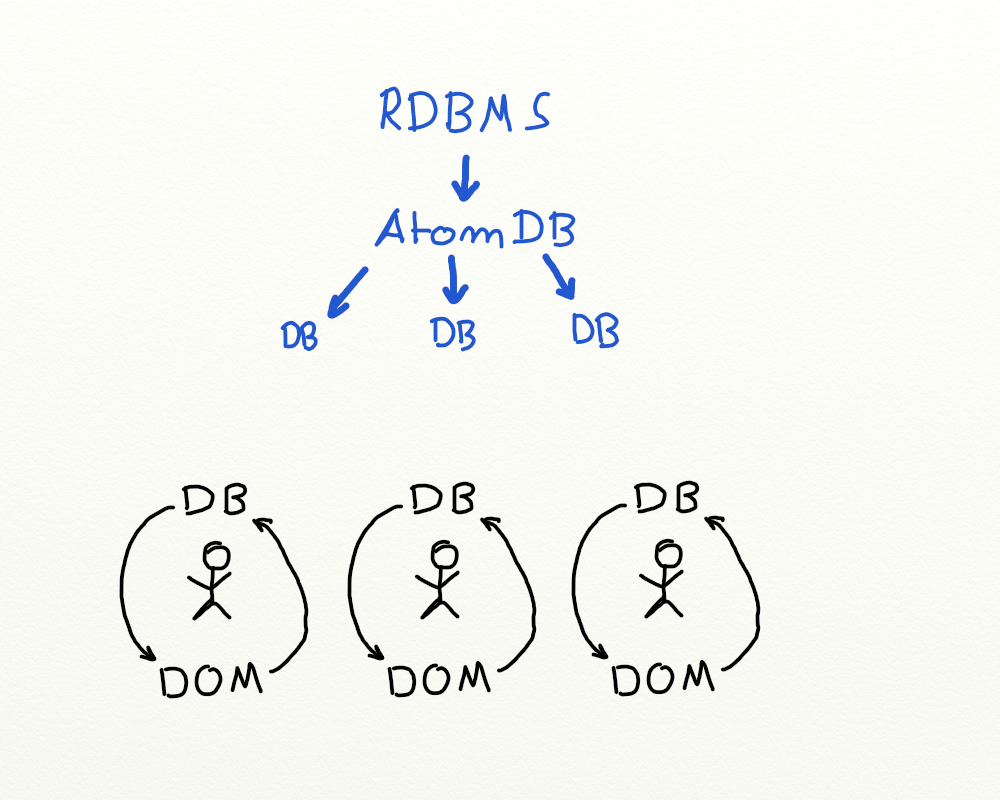 RDBMS
AtomDB
DB DB DB
DB DB DB
DOM DOM DOM